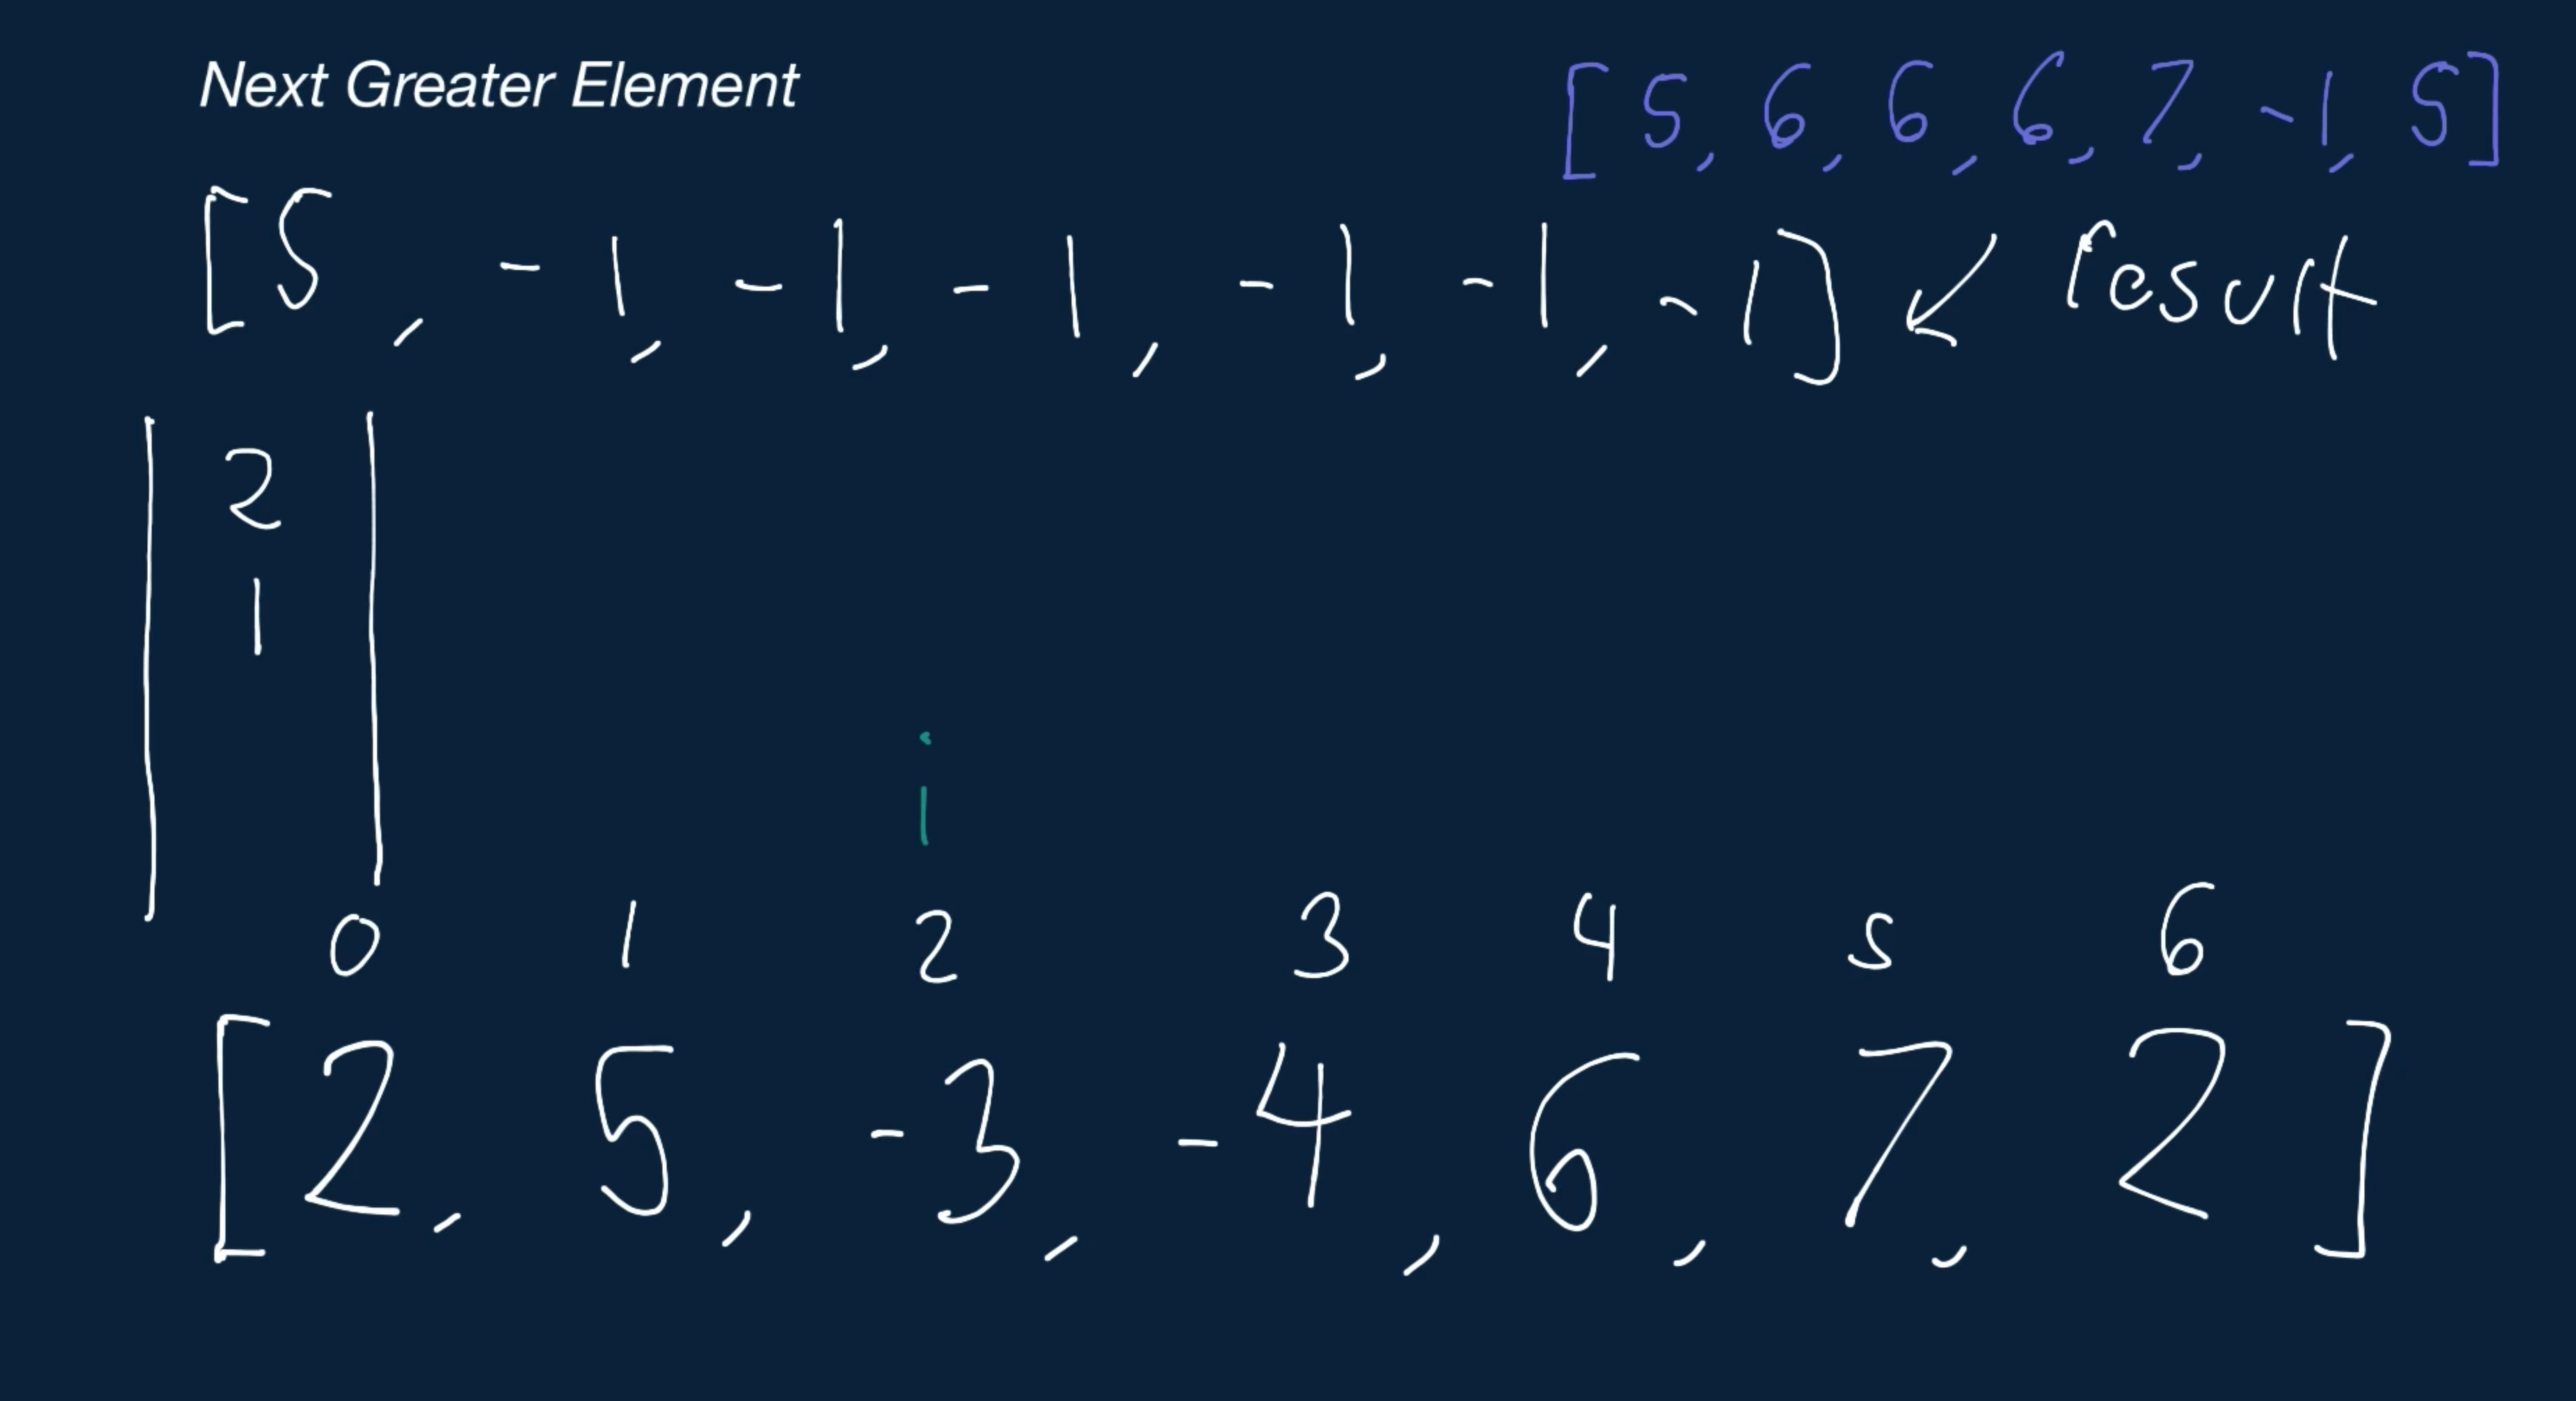 Next Greater Element
[5, 6, 6, 6, 7, -1, 5]
[5, -1, -1, -1, -1, -1, -1] ↙ result
2
1
i
0 1 2 3 4 5 6
[2, 5, -3, -4, 6, 7, 2]